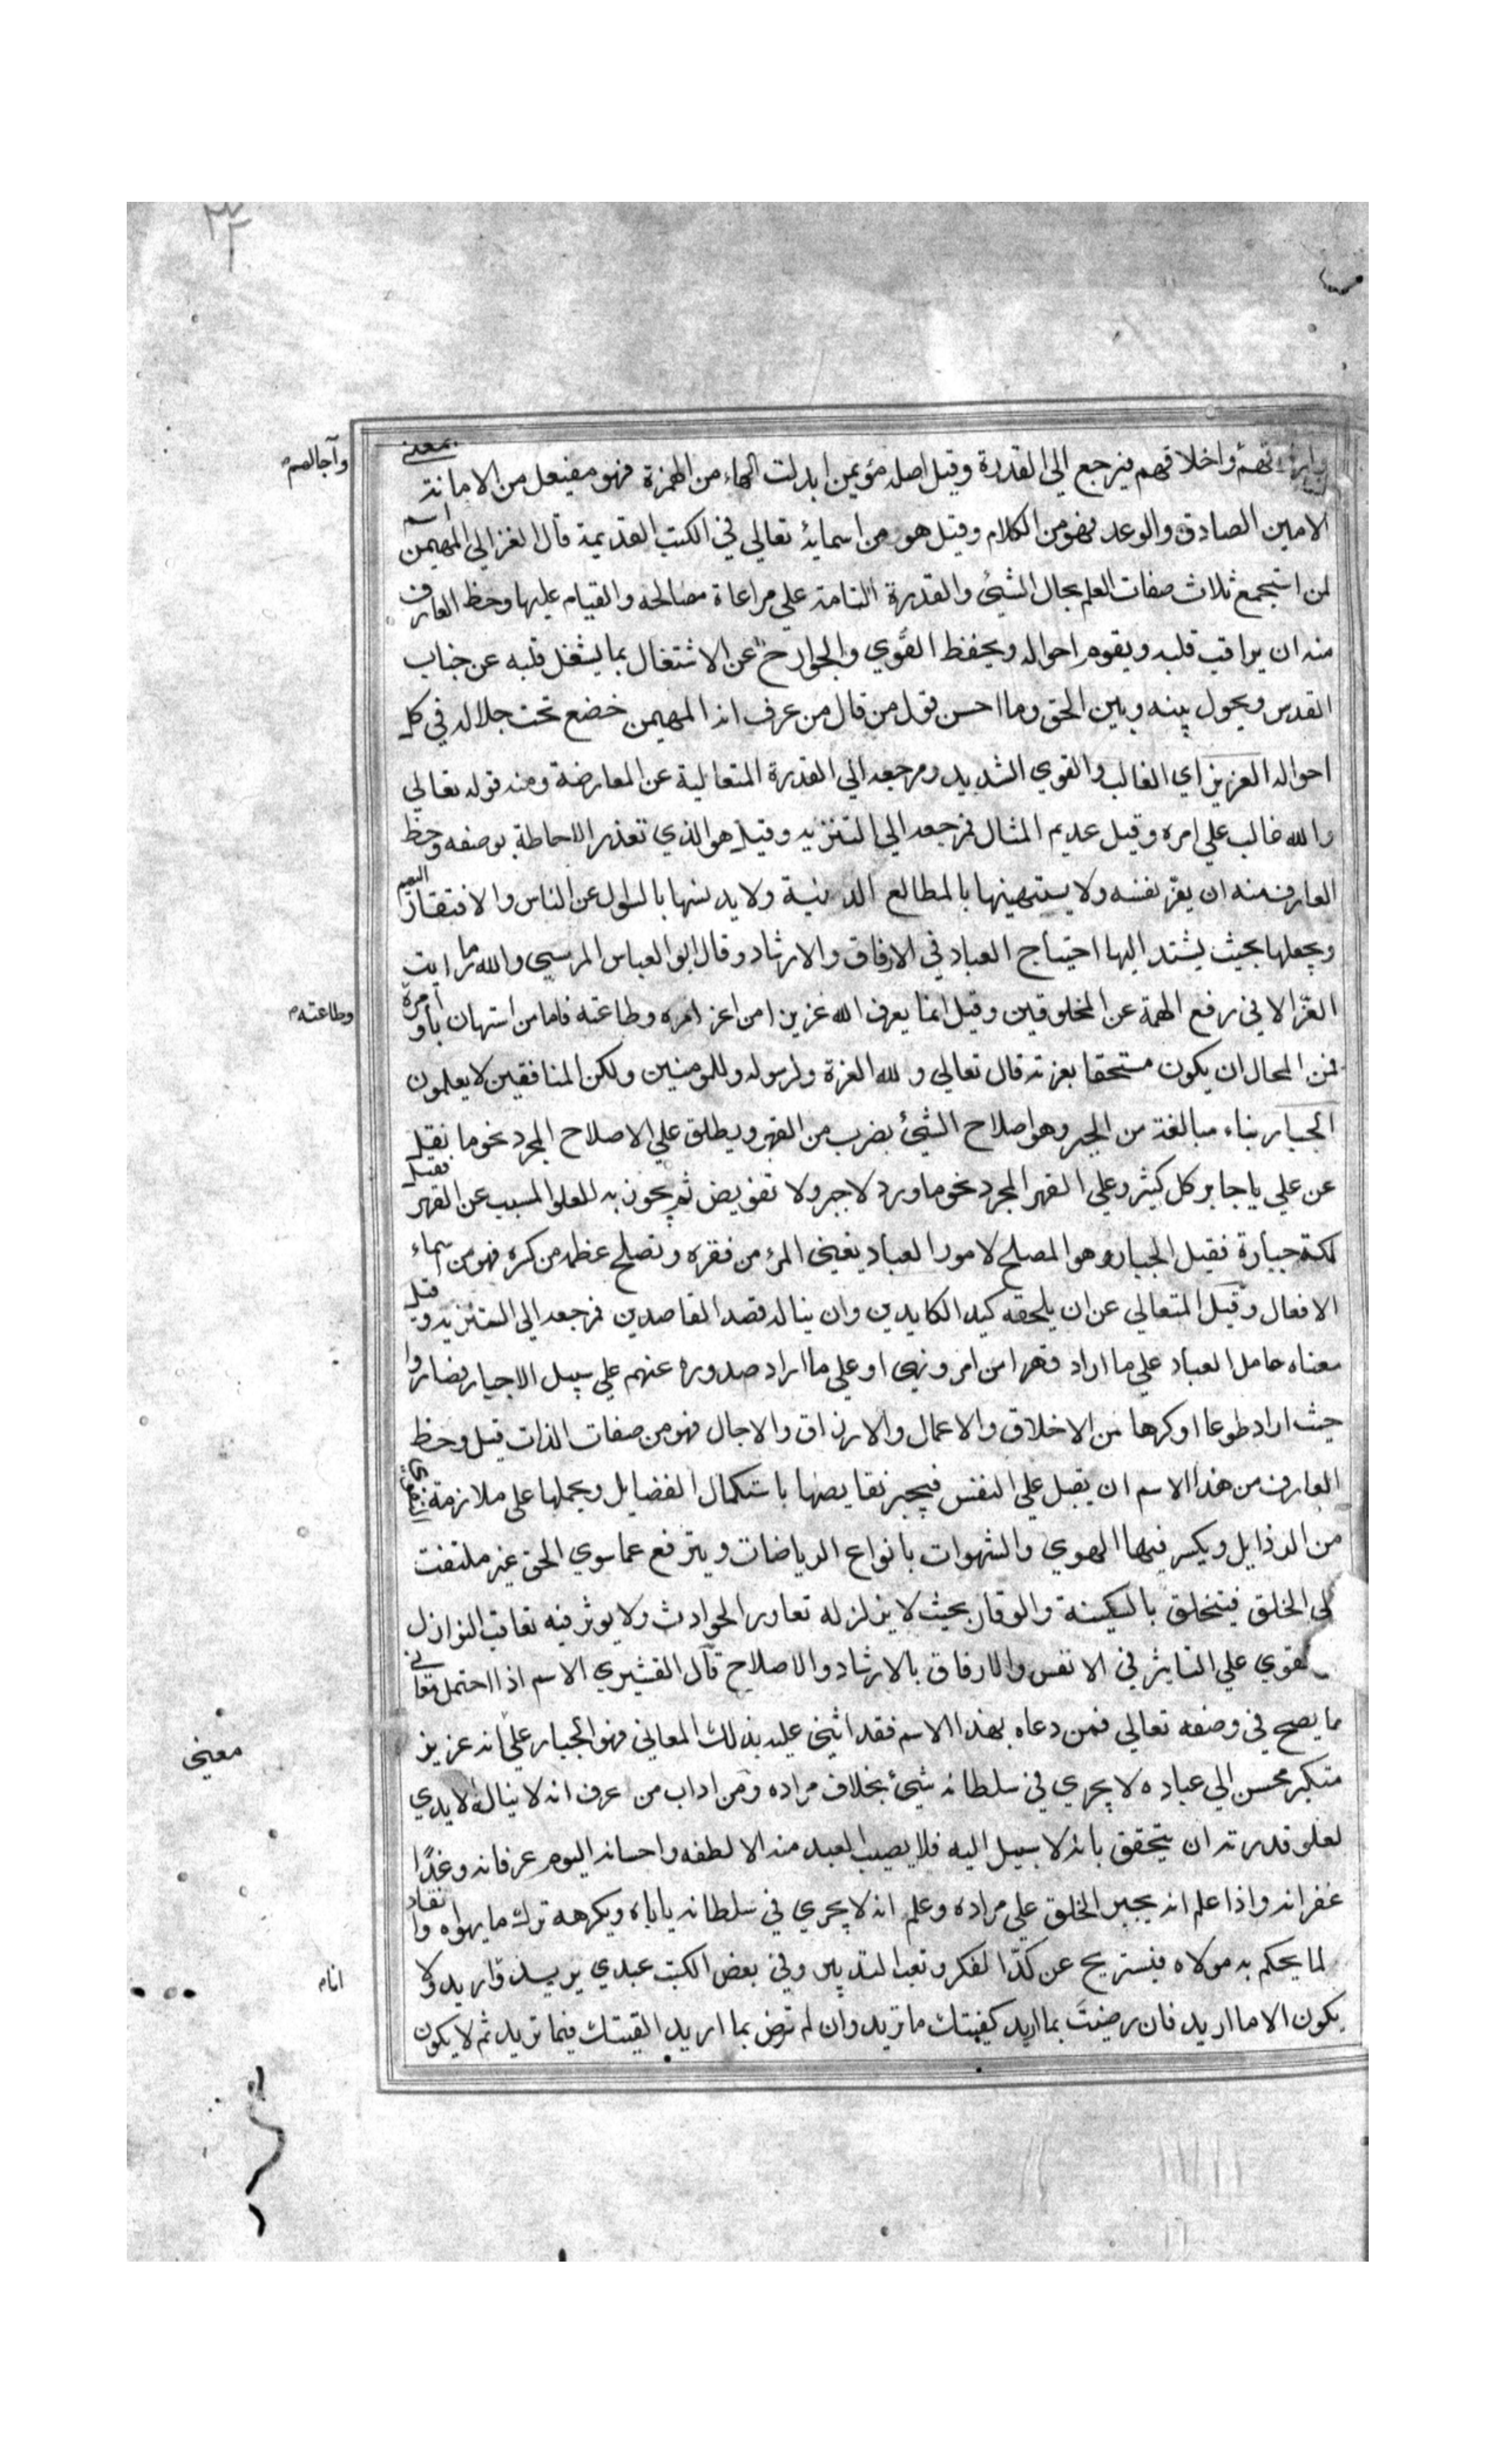 وارزاقهم واخلاقهم فيرجع الي القدرة وقيل اصله مؤيمن ابدلت الهاء من الهمزة فهو مفيعل من الامانة بمعني
وآجالهم
الامين الصادق والوعد فهو من الكلام وقيل هو من اسمائه تعالي في الكتب القديمة قال الغزالي المهيمن اسم
لمن استجمع ثلاث صفات العلم بحال الشيئ والقدرة التامة علي مراعاة مصالحه والقيام عليها وحظ العارف
منه ان يراقب قلبه ويقوم احواله ويحفظ القوي والجوارح عن الاشتغال بما يشغل قلبه عن جناب
القدس ويحول بينه وبين الحق وما احسن قول من قال من عرف انه المهيمن خضع تحت جلاله في كل
احواله العزيز اي الغالب والقوي الشديد ومرجعه الي القدرة المتعالية عن المعارضة ومنه قوله تعالي
والله غالب علي امره وقيل عديم المثال فمرجعه الي التنزيه وقيل هو الذي تعذر الاحاطة بوصفه وحظ
العارف منه ان يعز نفسه ولا يستهينها بالمطالع الدنية ولا يدنسها بالسؤل عن الناس والافتقار اليهم
ويجعلها بحيث يشتد اليها احتياج العباد في الارفاق والارشاد وقال ابو العباس المرسي والله ما رايت
العز الا في رفع الهمة عن المخلوقين وقيل انما يعرف الله عزيزا من اعز امره وطاعته فاما من استهان باوامره
وطاعته
فمن المحال ان يكون مستحقا بعزته قال تعالي ولله العزة ولرسوله وللمومنين ولكن المنافقين لا يعلمون
الجبار بناء مبالغة من الجبر وهو اصلاح الشيئ بضرب من القهر ويطلق علي الاصلاح المجرد نحو ما نقل
عن علي يا جابر كل كثير وعلي القهر المجرد نحو ما ورد لا جبر ولا تفويض ثم يجوز به للعلو المسبب عن القهر فقيل
لكنة جبارة فقيل الجبار هو المصلح لامور العباد يغني المرء من فقره وتصلح عظمه من كسره فهو من اسماء
الافعال وقيل المتعالي عن ان يلحقه كيد الكايدين وان يناله قصد القاصدين فمرجعه الي التنزيه وقيل
معناه حامل العباد علي ما اراد قهرا من امر ونهي او علي ما اراد صدوره عنهم علي سبيل الاجبار فصاروا
حيث اراد طوعا او كرها من الاخلاق والاعمال والارزاق والاجال فهو من صفات الذات قيل وحظ
العارف من هذا الاسم ان يقبل علي النفس فيجبر نقايصها باستكمال الفضايل ويحملها علي ملازمة التقوي
من الرذايل ويكسر فيها الهوي والشهوات بانواع الرياضات ويترفع عما سوي الحق غير ملتفت
لي الخلق فيتخلق بالسكينة والوقار بحيث لا يزلزله تعاور الحوادث ولا يوثر فيه تعاقب النوازل
يقوي علي التاثير في الانفس والارفاق بالارشاد والاصلاح قال القشيري الاسم اذا احتمل معاني
ما يصح في وصفه تعالي فمن دعاه بهذا الاسم فقد اثني عليه بذلك المعاني فهو الجبار علي انه عزيز
معني
متكبر محسن الي عباده لا يجري في سلطانه شيئ بخلاف مراده ومن اداب من عرف انه لا يناله الايدي
لعلو قدرته ان يتحقق بانه لا سبيل اليه فلا يصيب العبد منه الا لطفه واحسانه اليوم عرفانه وغدا
غفرانه واذا علم انه يجبر الخلق علي مراده وعلم انه لا يجري في سلطانه ياباه ويكرهه ترك ما يهواه وانقاد
لما يحكم به مولاه فيستريح عن كد الفكر وتعب التدبير وفي بعض الكتب عبدي يريد واريد ولا
انام
يكون الا ما اريد فان رضيت بما اريد كفيتك ما تريد وان لم ترض بما اريد القيتك فيما تريد ثم لا يكون